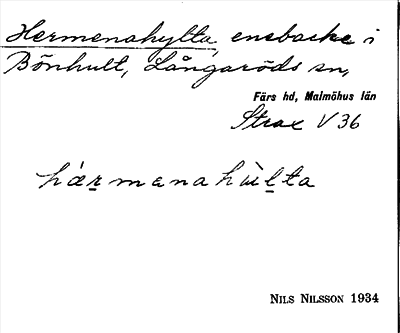 Hermenahylta, enebacke i
Bönhult, Långaröds sn,
Färs hd, Malmöhus län
Strax V 36
hæ̀rmenahùlta
NILS NILSSON 1934